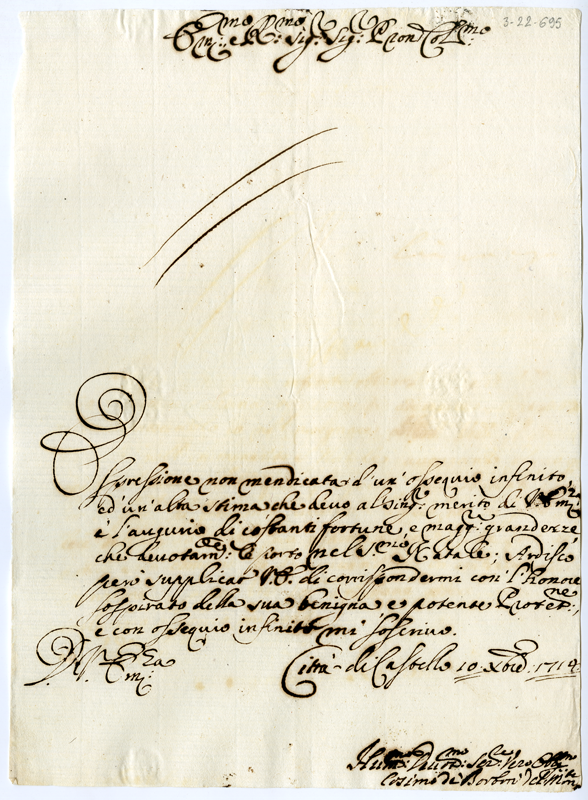 3-22-695
Em:mo e R:mo Sig:r Sig:r Pron Col:mo
Espressione non mendicata d'un' ossequio infinito,
ed'un'alta stima che devo al sing:r merito di V. Em:za
è l'augurio di costanti fortune, e magg:ri grandezze
che devotam:te le porto nel S:mo Natale; Ardisco
però supplicar V. E. di corrispondermi con l'honore
sospirato della sua benigna e potente Protet:ne,
e con ossequio infinito mi soscrivo.
D. V. Em:za
Città di Castello 10. Xbre 1714
Hum:mo Devot:mo Ser:re Vero Obl:mo
Cosimo de Borbni del Mon:te